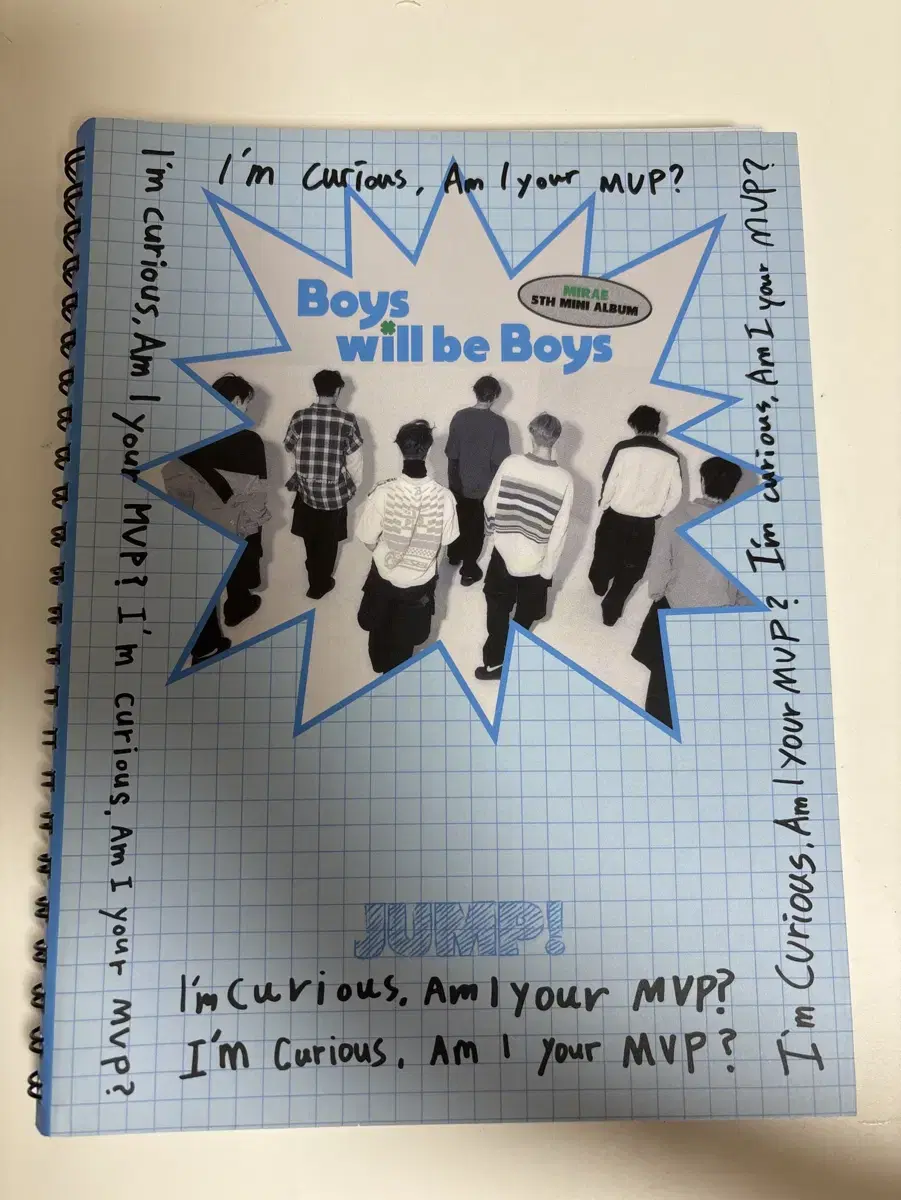 I'm curious, Am I your MVP?
Boys
will be Boys
MIRAE
5TH MINI ALBUM
I'm curious, Am I your MVP? I'm curious, Am I your MVP?
I'm Curious, Am I your MVP? I'm curious, Am I your MVP?
JUMP!
I'm Curious, Am I your MVP?
I'm Curious, Am I your MVP?